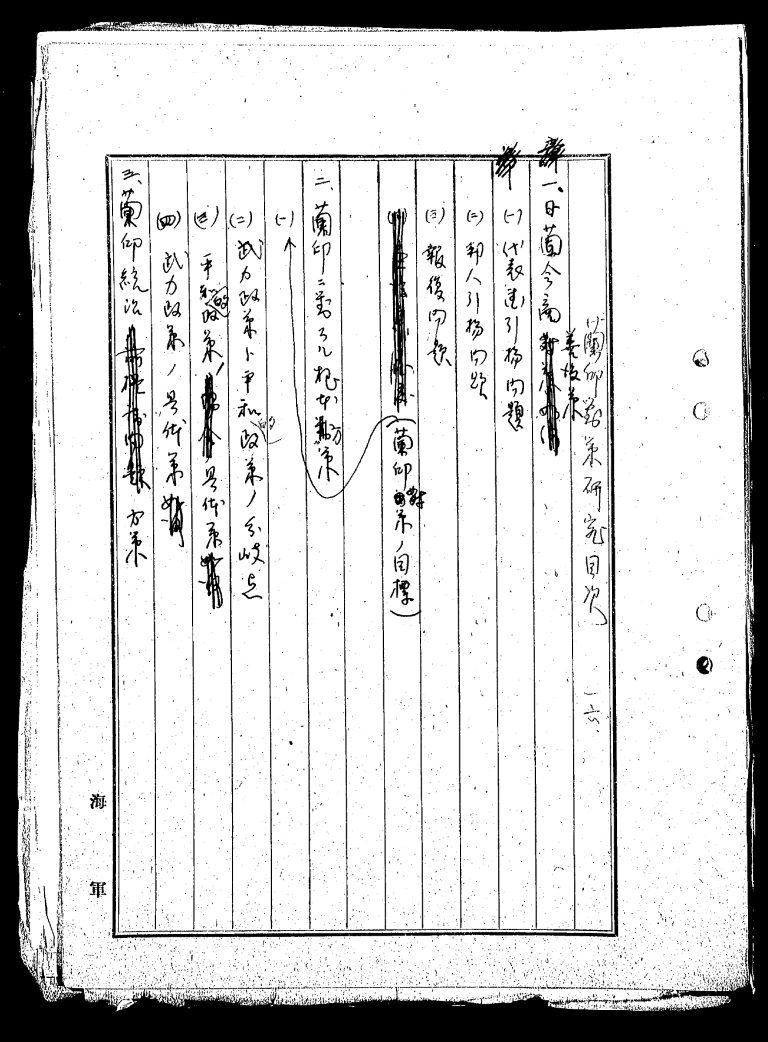 蘭印対策研究目次 一六、
一、日蘭会商善後策
(一)代表引揚問題
(二)邦人引揚問題
(三)報復問題
(蘭印対策ノ目標)
二、蘭印ニ対スル根本方策
(一)
(二)武力政策ト平和的政策ノ分岐点
(三)平和的政策ノ具体策
(四)武力政策ノ具体策
三、蘭印統治方策
海軍